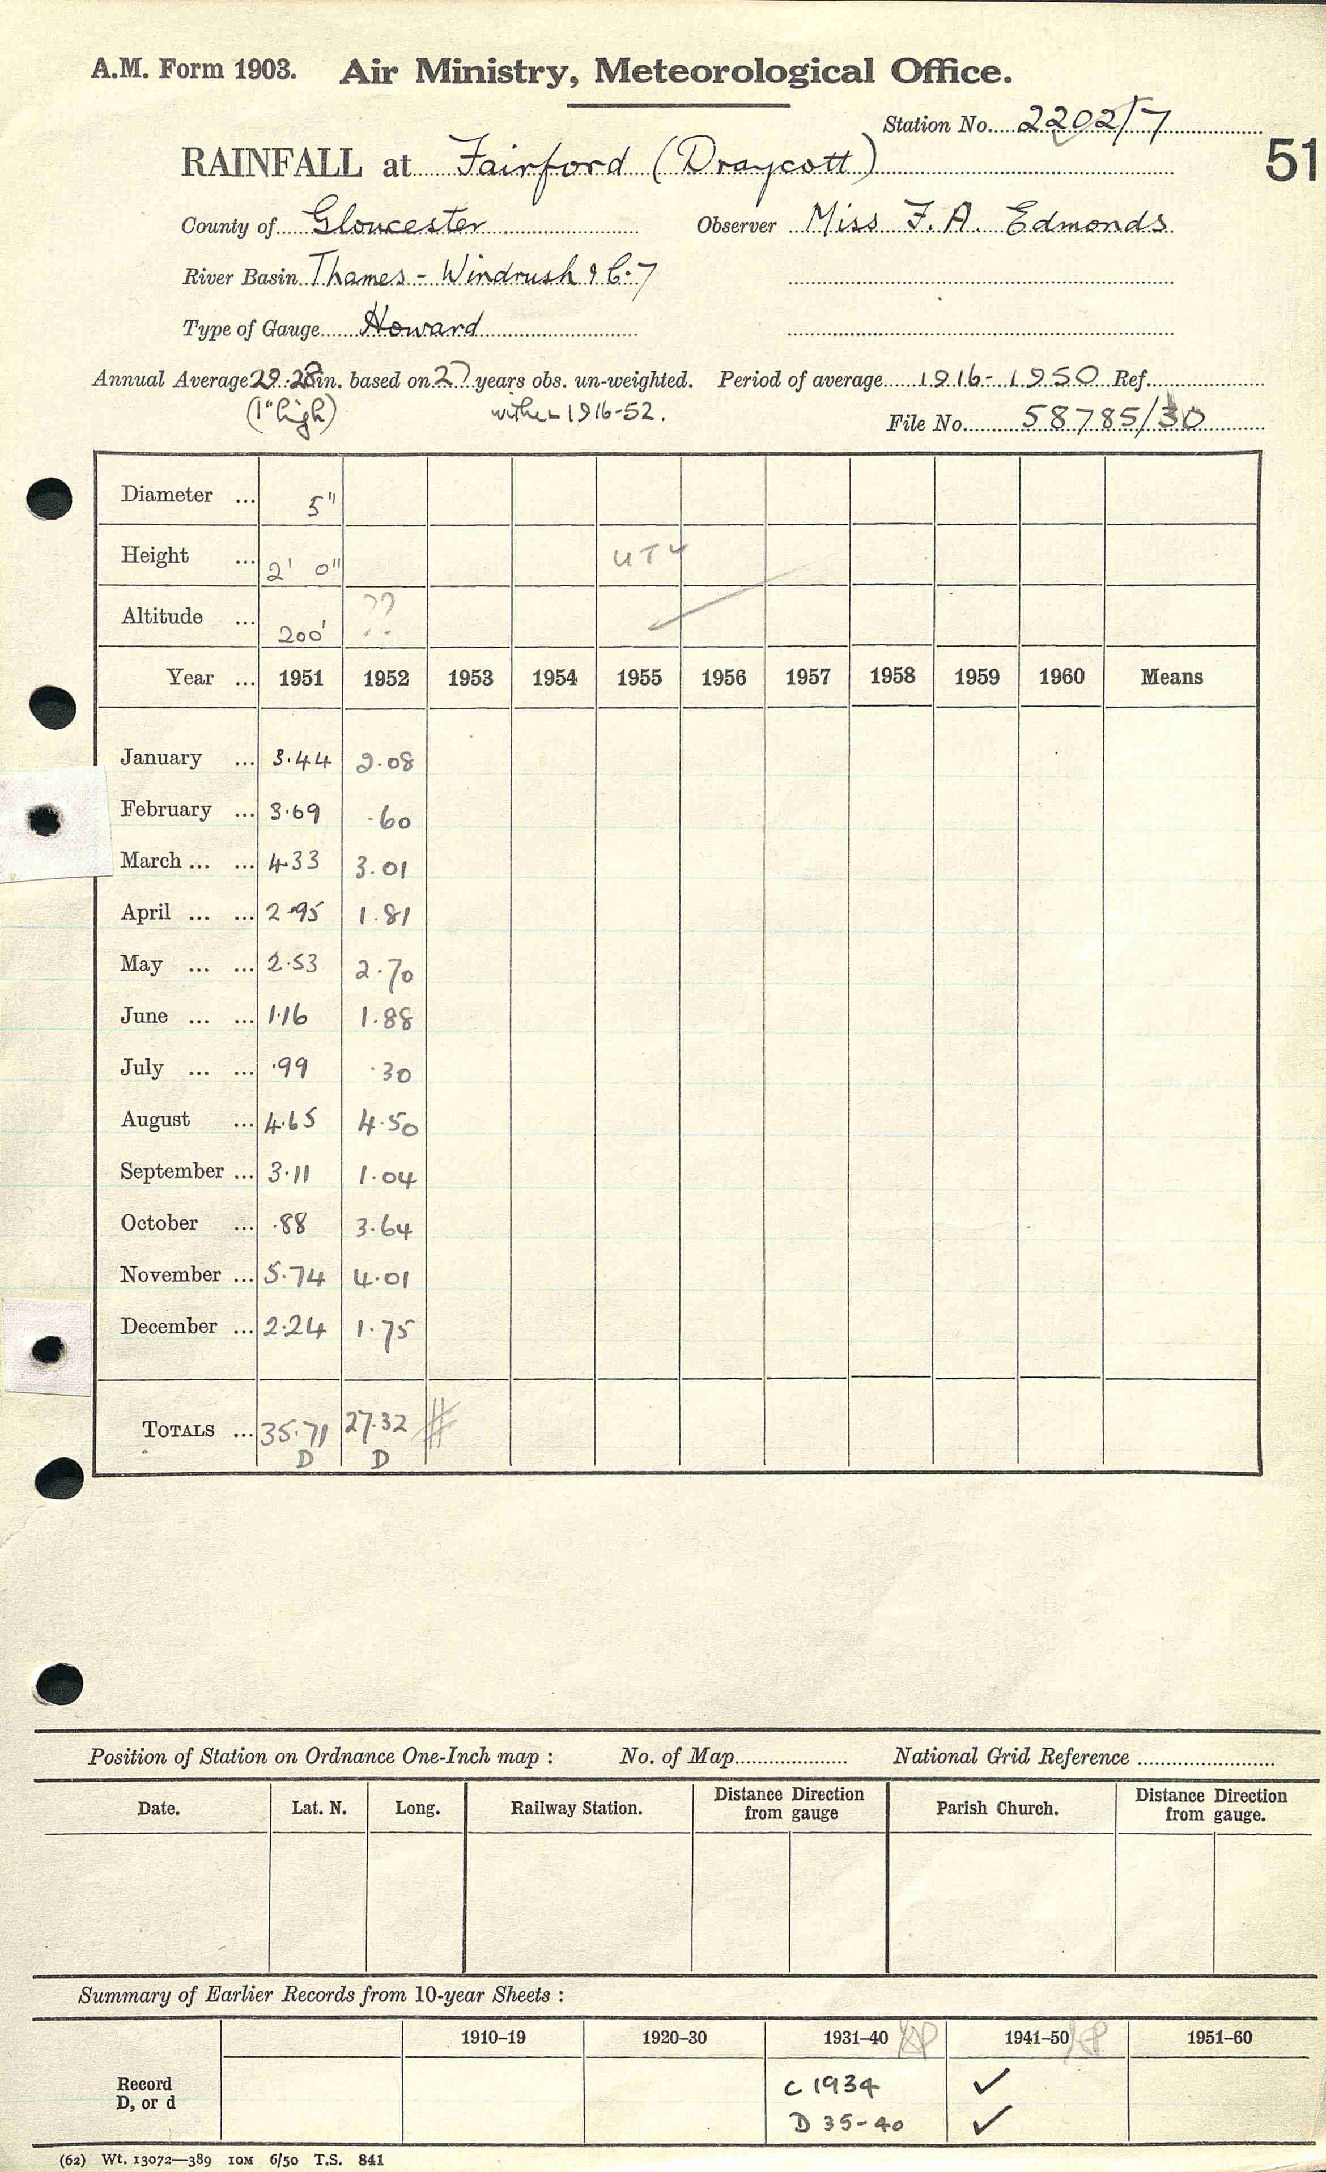 A.M. Form 1903. Air Ministry, Meteorological Office.
Station No. 2202/7
RAINFALL at Fairford (Draycott)
51
County of Gloucester Observer Miss F. A. Edmonds
River Basin Thames - Windrush & C. 7
Type of Gauge Howard
Annual Average 29.28 in. based on 27 years obs. un-weighted. Period of average 1916-1950 Ref.
(1" high) within 1916-52. File No. 58785/30
Diameter ... 5"
Height ... 2' 0" UTY
Altitude ... 200' ??
Year ... 1951 1952 1953 1954 1955 1956 1957 1958 1959 1960 Means
January ... 3.44 2.08
February ... 3.69 .60
March ... ... 4.33 3.01
April ... ... 2.95 1.81
May ... ... 2.53 2.70
June ... ... 1.16 1.88
July ... ... .99 .30
August ... 4.65 4.50
September ... 3.11 1.04
October ... .88 3.64
November ... 5.74 4.01
December ... 2.24 1.75
TOTALS ... 35.71 27.32
D D
Position of Station on Ordnance One-Inch map : No. of Map National Grid Reference
Date. Lat. N. Long. Railway Station. Distance Direction from gauge Parish Church. Distance Direction from gauge.
Summary of Earlier Records from 10-year Sheets :
1910–19 1920–30 1931–40 1941–50 1951–60
Record C 1934 ✓
D, or d D 35-40 ✓
(62) Wt. 13072—389 10M 6/50 T.S. 841